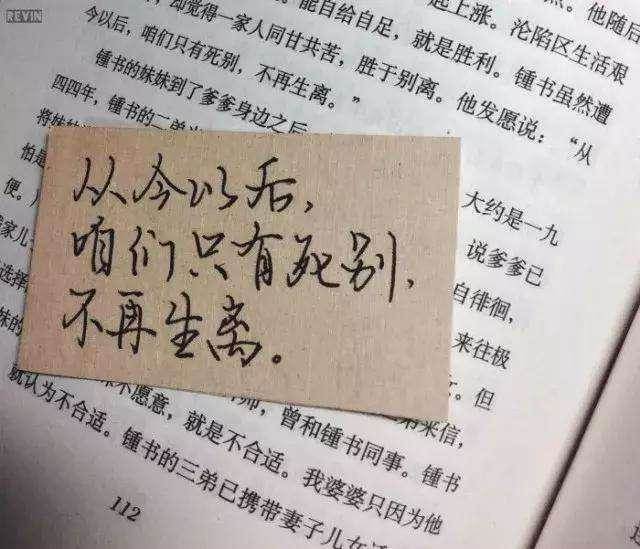 REVIN
却觉得一家人同甘共苦,胜于别离。他发愿说:“从
能自给自足,就是胜利。锺书虽然遭
起上涨。沦陷区生活艰
他随后
今以后,咱们只有死别,不再生离。”
锺书的妹妹到了爹爹身边之后
大约是一九
四四年,锺书的二弟
说爹爹已
将妹妹
自徘徊,
怕是
来往极
便。
但
家儿
选择
妹的
来信,
不愿意,就是不合适。
曾和锺书同事。锺书
就认为不合适。锺书的三弟已携带妻子儿女
我婆婆只因为他
112
从今以后,
咱们只有死别,
不再生离。